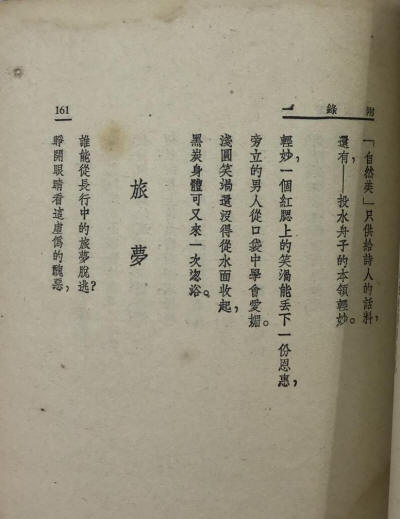 附錄一
「自然美」只供給詩人的話料，
還有，——投水舟子的本領輕妙。
輕妙，一個紅腮上的笑渦能丟下一份恩惠，
旁立的男人從口袋中學會愛媚。
淺圓笑渦還沒得從水面收起，
黑炭身體可又來一次泅浴。
旅夢
誰能從長行中的旅夢脫逃？
睜開眼睛看這虛僞的醜惡，
161